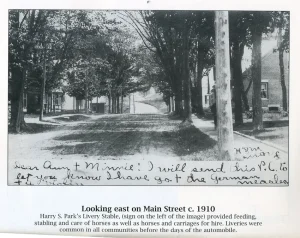 Dear Aunt & Minnie: I will send this P.C. to
let you know I have got the
Looking east on Main Street c. 1910
Harry S. Park's Livery Stable, (sign on the left of the image) provided feeding,
stabling and care of horses as well as horses and carriages for hire. Liveries were
common in all communities before the days of the automobile.